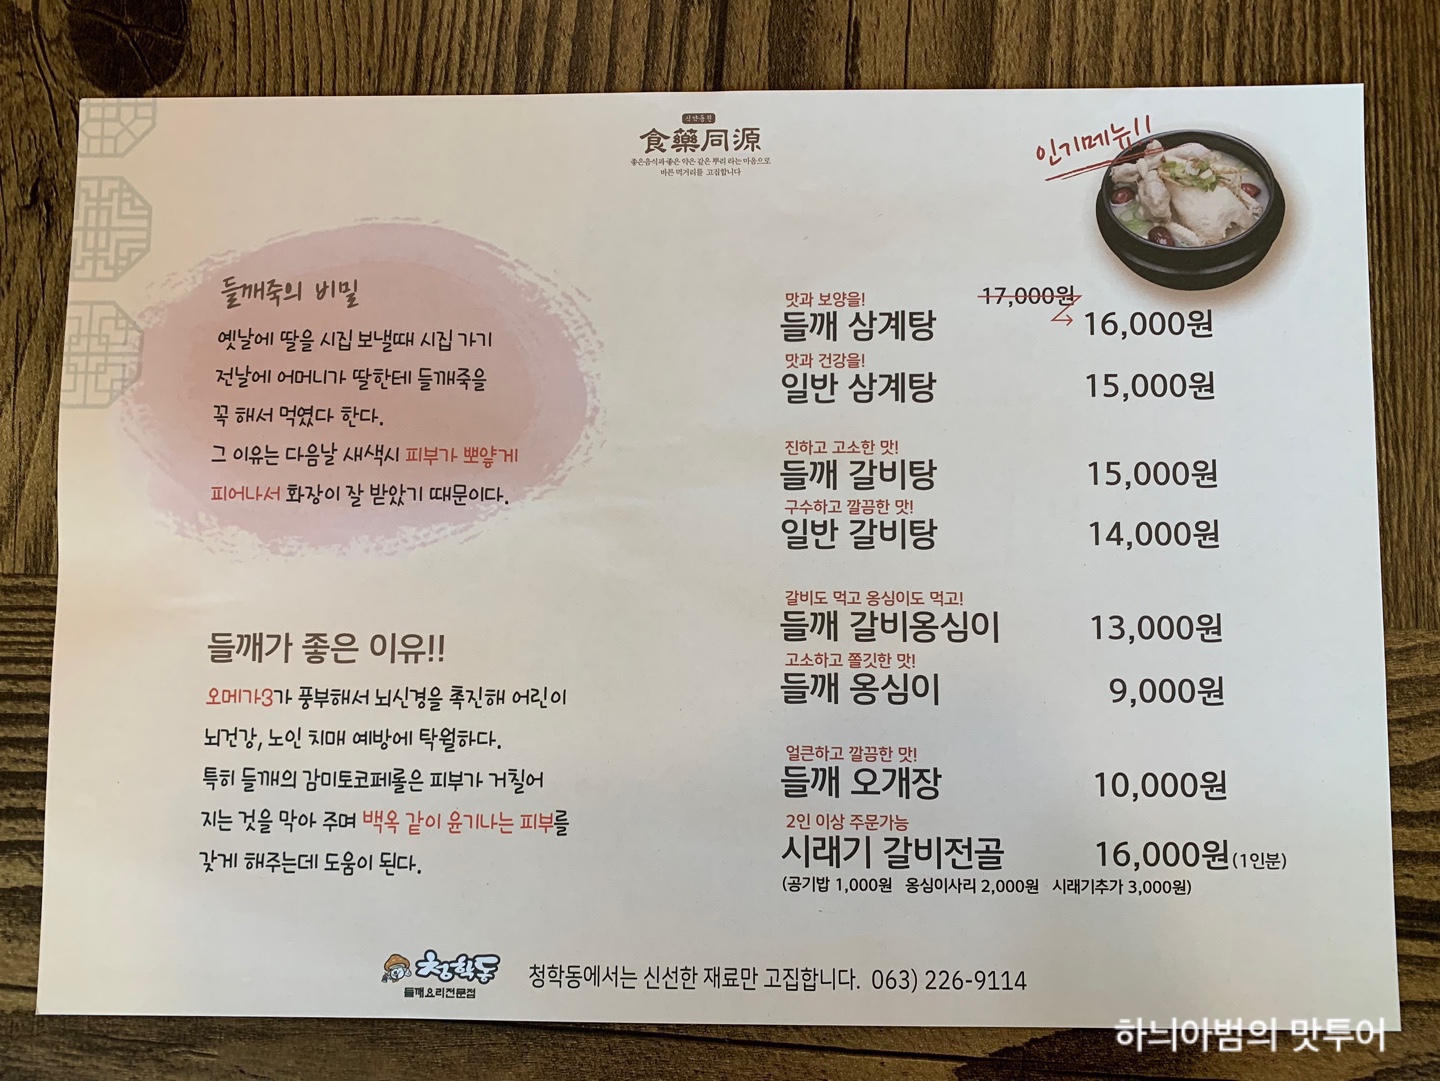 식약동원
食藥同源
좋은음식과 좋은 약은 같은 뿌리 라는 마음으로
바른 먹거리를 고집합니다
인기메뉴!!
들깨죽의 비밀
옛날에 딸을 시집 보낼때 시집 가기
전날에 어머니가 딸한테 들깨죽을
꼭 해서 먹였다 한다.
그 이유는 다음날 새색시 피부가 뽀얗게
피어나서 화장이 잘 받았기 때문이다.
들깨가 좋은 이유!!
오메가3가 풍부해서 뇌신경을 촉진해 어린이
뇌건강, 노인 치매 예방에 탁월하다.
특히 들깨의 감미토코페롤은 피부가 거칠어
지는 것을 막아 주며 백옥 같이 윤기나는 피부를
갖게 해주는데 도움이 된다.
맛과 보양을!
17,000원
들깨 삼계탕 16,000원
맛과 건강을!
일반 삼계탕 15,000원
진하고 고소한 맛!
들깨 갈비탕 15,000원
구수하고 깔끔한 맛!
일반 갈비탕 14,000원
갈비도 먹고 옹심이도 먹고!
들깨 갈비옹심이 13,000원
고소하고 쫄깃한 맛!
들깨 옹심이 9,000원
얼큰하고 깔끔한 맛!
들깨 오개장 10,000원
2인 이상 주문가능
시래기 갈비전골 16,000원(1인분)
(공기밥 1,000원 옹심이사리 2,000원 시래기추가 3,000원)
청학동
들깨요리전문점
청학동에서는 신선한 재료만 고집합니다. 063) 226-9114
하늬아범의 맛투어